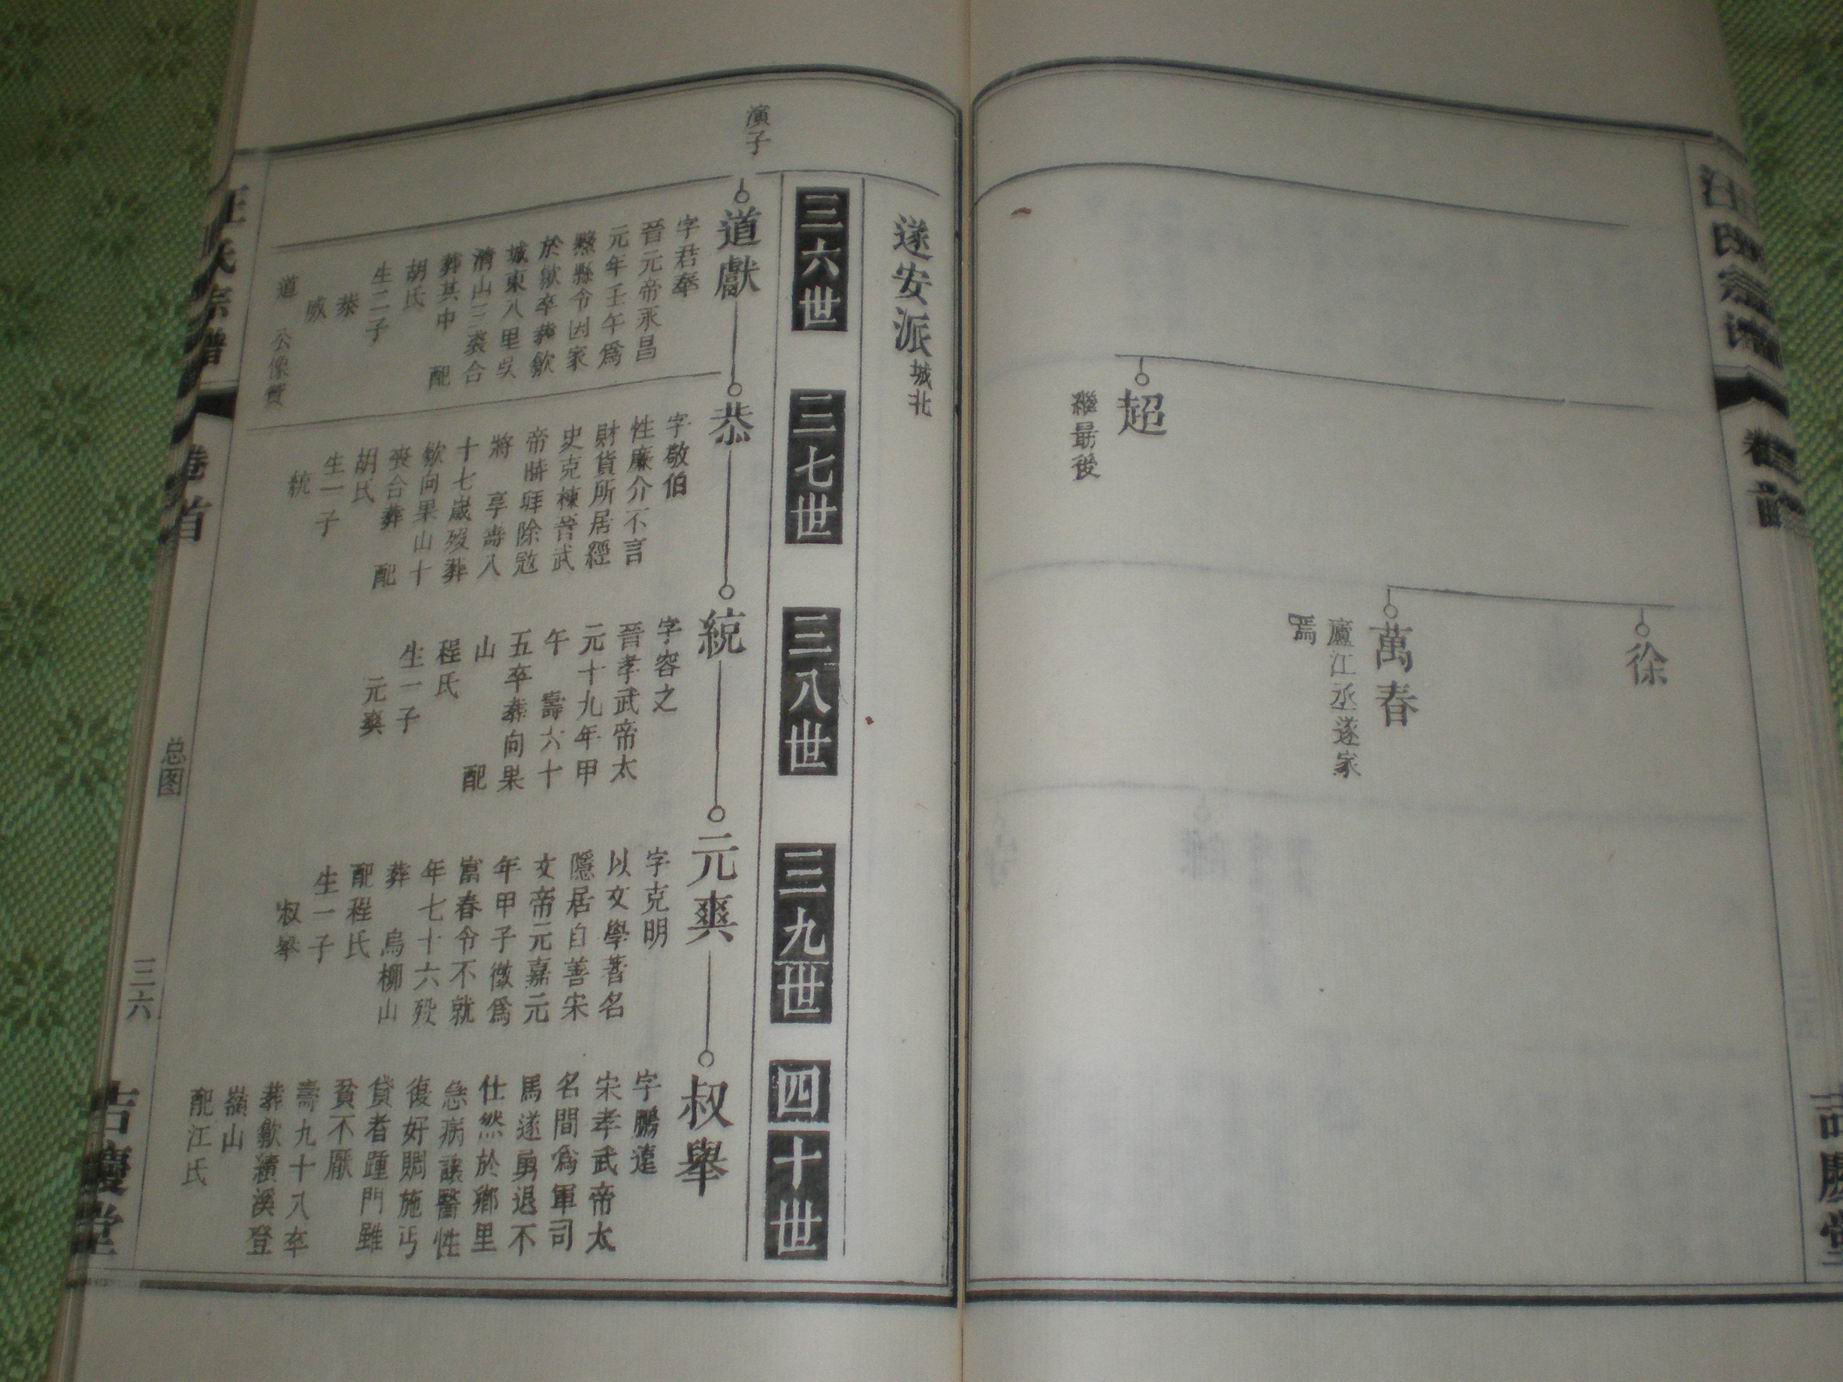 徐
萬春
廬江丞遂家
焉
超
繼最後
遂安派 城北
三六世
三七世
三八世
三九世
四十世
演子
道獻
字君奉
晉元帝永昌
元年壬午爲
縣令因家
於歙卒葬歙
城東八里吳
清山三裘合
葬其中 配
胡氏
生二子
恭
道
恭
字敬伯
性廉介不言
財貨所居經
史克棟晉武
帝時拜除寇
將 享壽八
十七歲歿葬
歙向果山十
喪合葬 配
胡氏
生一子
統
統
字容之
晉孝武帝太
元十九年甲
午 壽六十
五卒葬向果
山 配
程氏
生一子
元爽
元爽
字克明
以文學著名
隱居自善宋
文帝元嘉元
年甲子徵爲
富春令不就
年七十六歿
葬 烏柳山
配程氏
生一子
叔舉
叔舉
字鵬遠
宋孝武帝太
名間爲軍司
馬遂勇退不
仕然於鄉里
急病讓醫性
復好賙施丐
貸者踵門雖
貧不厭
壽九十八卒
葬歙績溪登
嶺山
配江氏
汪氏宗譜
卷首
总图
三六
吉慶堂